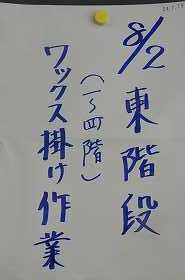 8/2 東階段
（一〜四階）
ワックス掛け作業